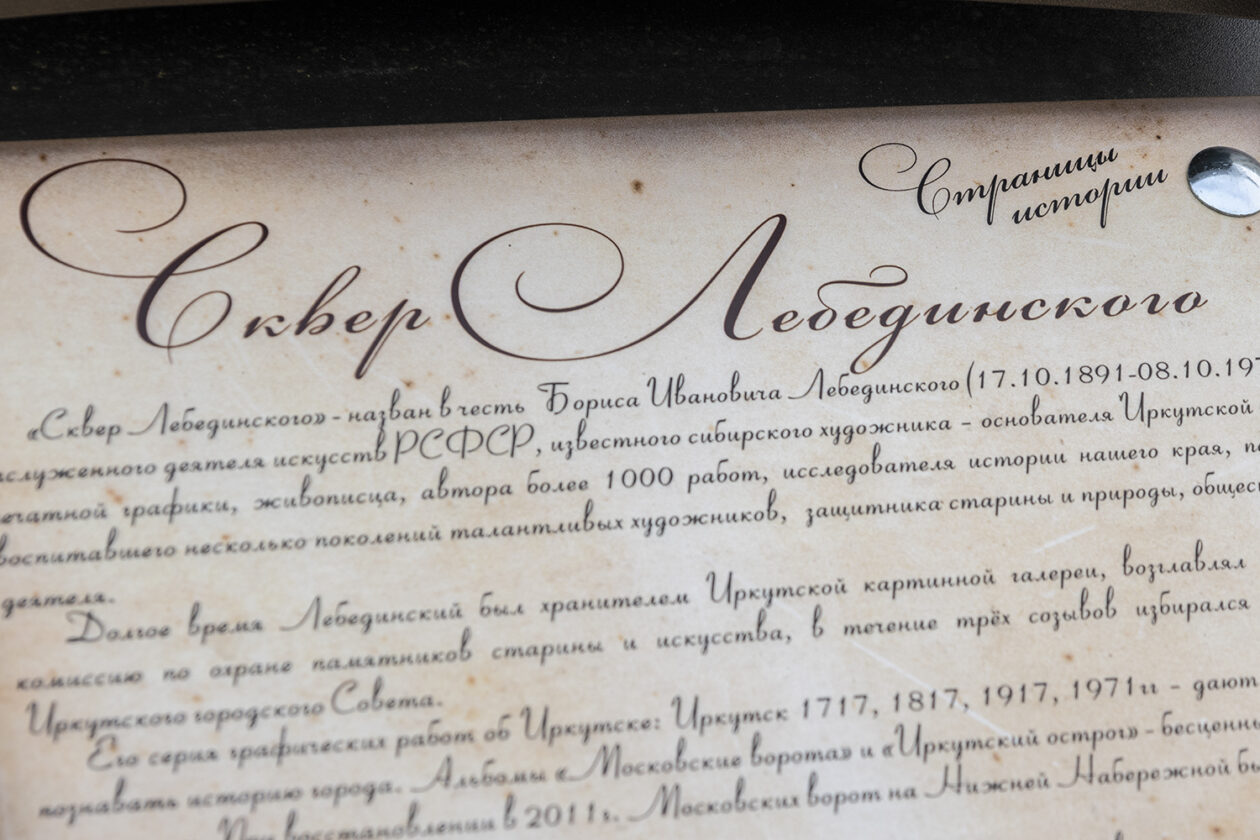 Страницы
истории
Сквер Лебединского
«Сквер Лебединского» - назван в честь Бориса Ивановича Лебединского (17.10.1891-08.10.197
служенного деятеля искусств РСФСР, известного сибирского художника - основателя Иркутской
ечатной графики, живописца, автора более 1000 работ, исследователя истории нашего края,
воспитавшего несколько поколений талантливых художников, защитника старины и природы, общест
деятеля.
Долгое время Лебединский был хранителем Иркутской картинной галереи, возглавлял
комиссию по охране памятников старины и искусства, в течение трёх созывов избирался
Иркутского городского Совета.
Его серия графических работ об Иркутске: Иркутск 1717, 1817, 1917, 1971гг - дают
познавать историю города. Альбомы «Московские ворота» и «Иркутский острог» - бесценны
При восстановлении в 2011г. Московских ворот на Нижней Набережной бы